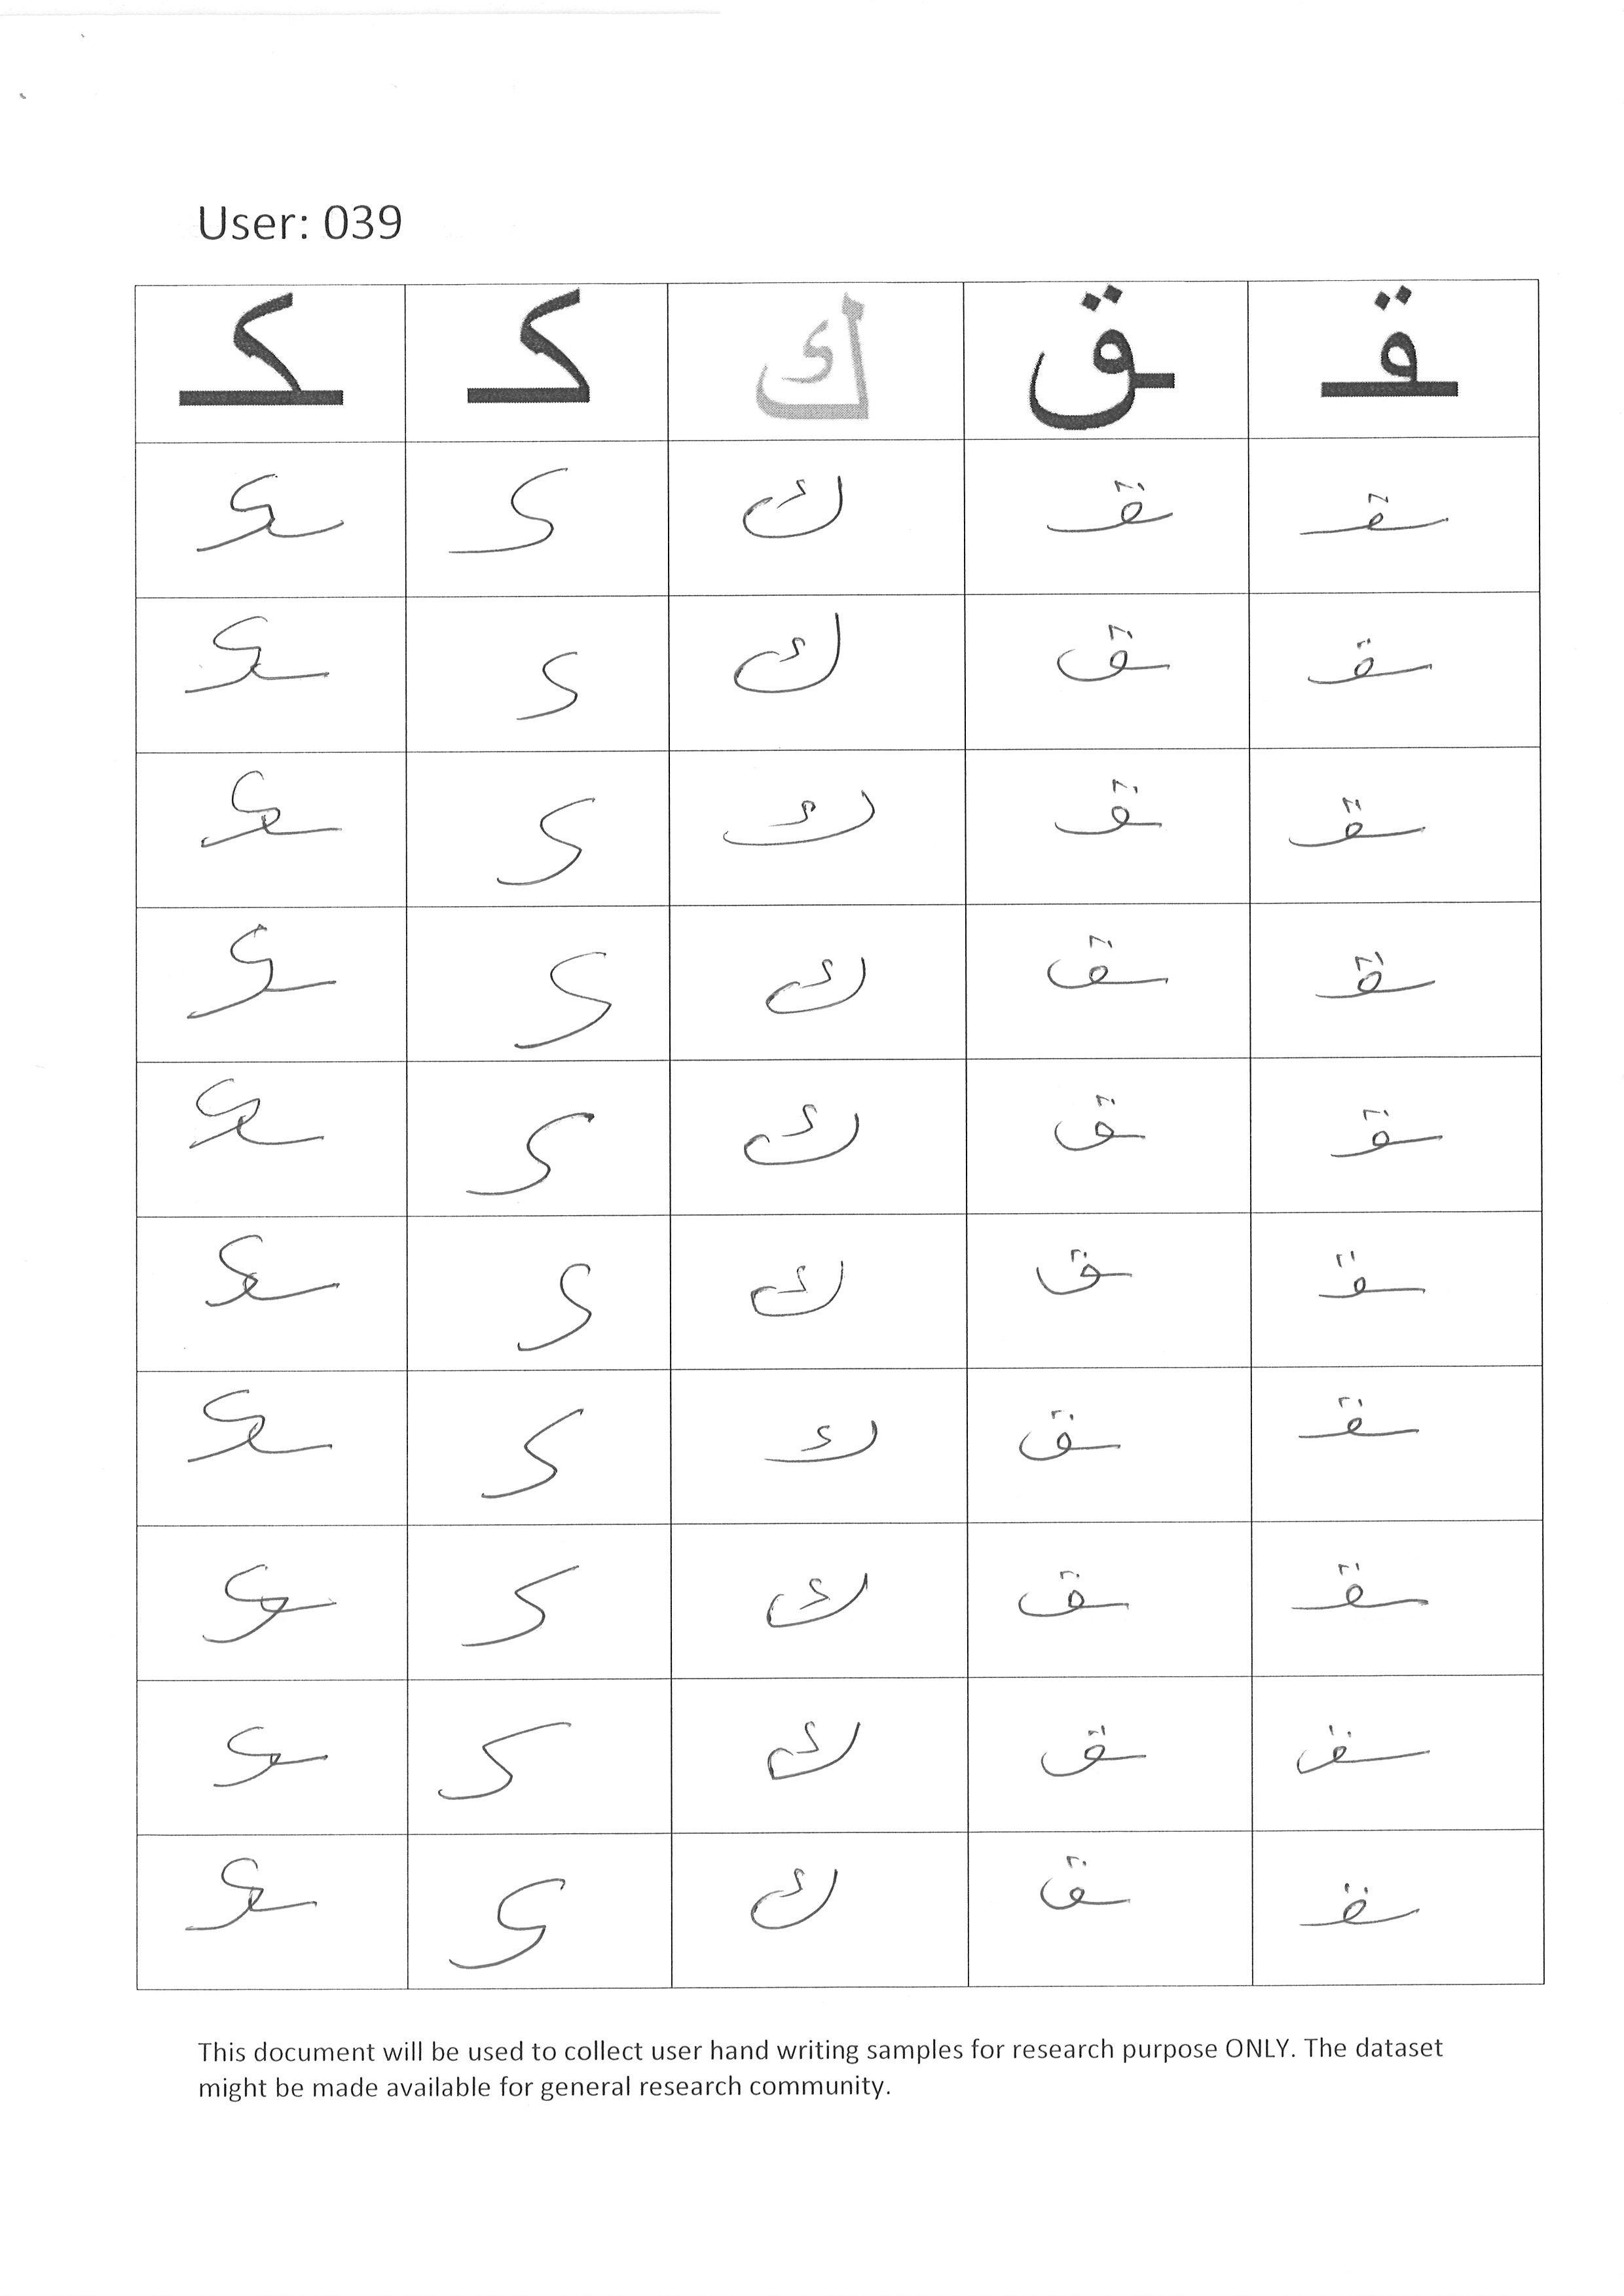 User: 039
ـكـ كـ ك ـق ـقـ
ـكـ كـ ك ـقـ ـقـ
ـكـ كـ ك ـق ـقـ
ـكـ كـ ك ـق ـقـ
ـكـ كـ ك ـق ـقـ
ـكـ كـ ك ـق ـقـ
ـكـ كـ ك ـق ـقـ
ـكـ كـ ك ـق ـقـ
ـكـ كـ ك ـق ـقـ
ـكـ كـ ك ـق ـقـ
ـكـ كـ ك ـق ـقـ
This document will be used to collect user hand writing samples for research purpose ONLY. The dataset
might be made available for general research community.